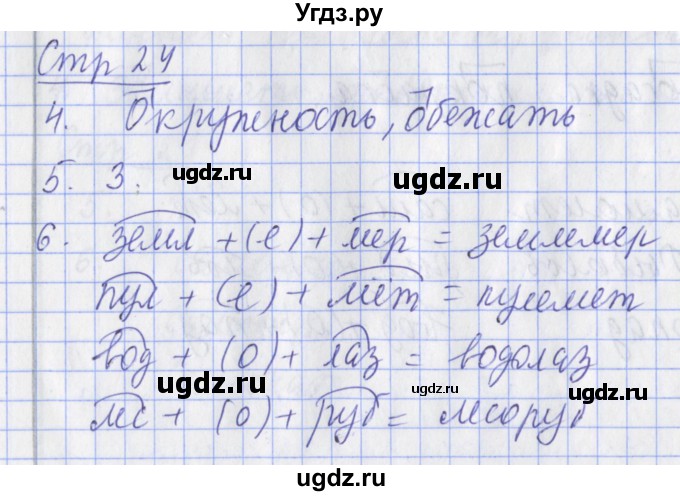 Угдз.ру
Стр 24
4. Окружность, обежать
ugdz.ru ugdz.ru
5. 3.
6. земл + (е) + мер = землемер
пул + (е) + мет = пулемет
ugdz.ru
вод + (о) + лаз = водолаз
ugdz.ru ugdz.ru
мс + (о) + руб = мсоруб
ugdz.ru